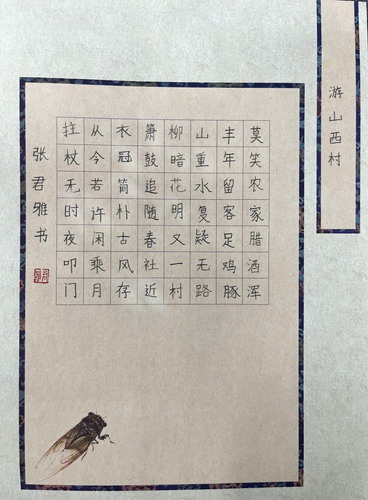 游山西村
莫笑农家腊酒浑
丰年留客足鸡豚
山重水复疑无路
柳暗花明又一村
箫鼓追随春社近
衣冠简朴古风存
从今若许闲乘月
拄杖无时夜叩门
张君雅书